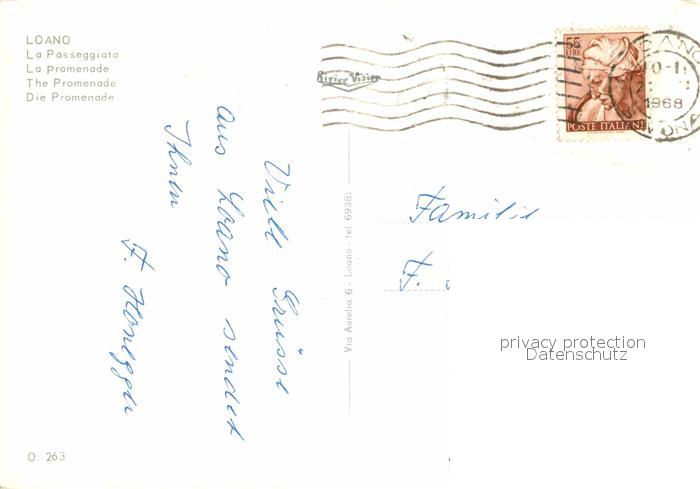 LOANO
La Passeggiata
La promenade
The Promenade
Die Promenade
Viele Grüsse
aus Loano sendet
Ihnen
F. Honegger
O. 263
Via Aurelia, 6 - Loano - tel. 69381
55
LIRE
POSTE ITALIANE
1968
Familie
F.
privacy protection
Datenschutz